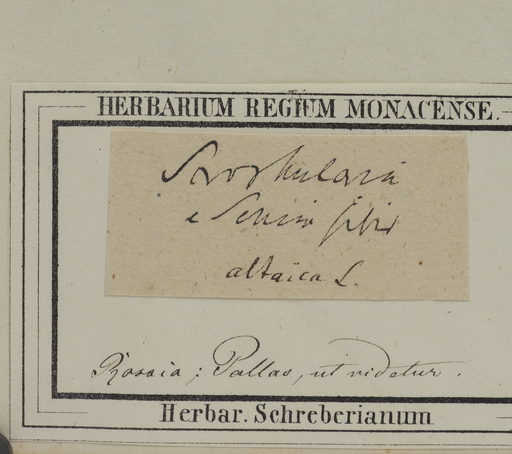 HERBARIUM REGIUM MONACENSE.
Scrophularia
e Semin sibir
altaica L.
Rossia; Pallas, ut videtur.
Herbar. Schreberianum